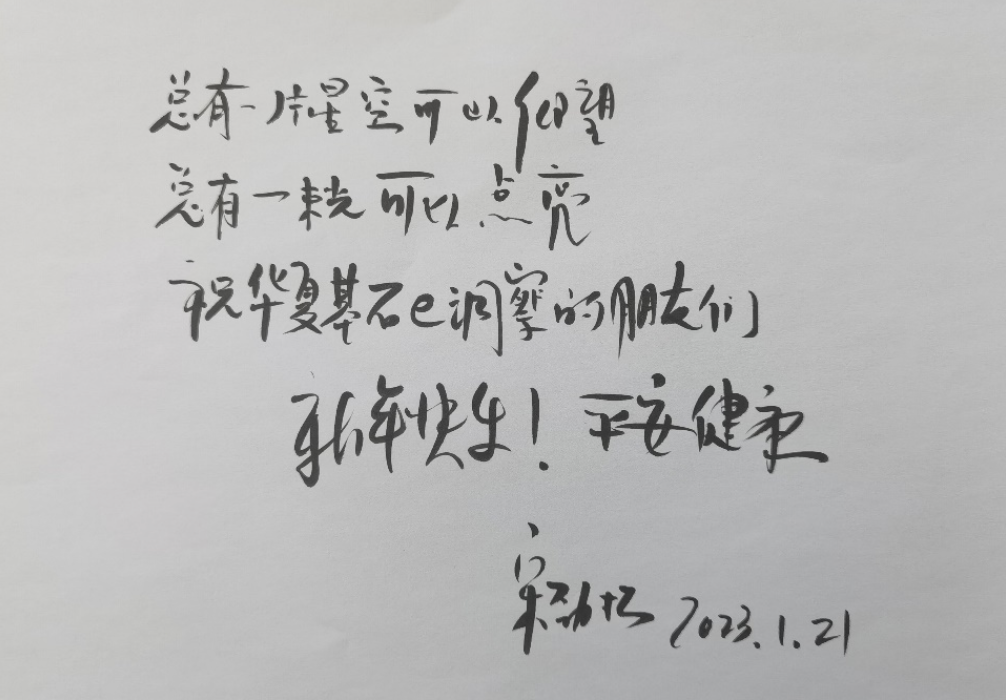 总有一片星空可以仰望
总有一束光可以点亮
祝华夏基石e洞察的朋友们
新年快乐！平安健康
宋劲松 2023.1.21